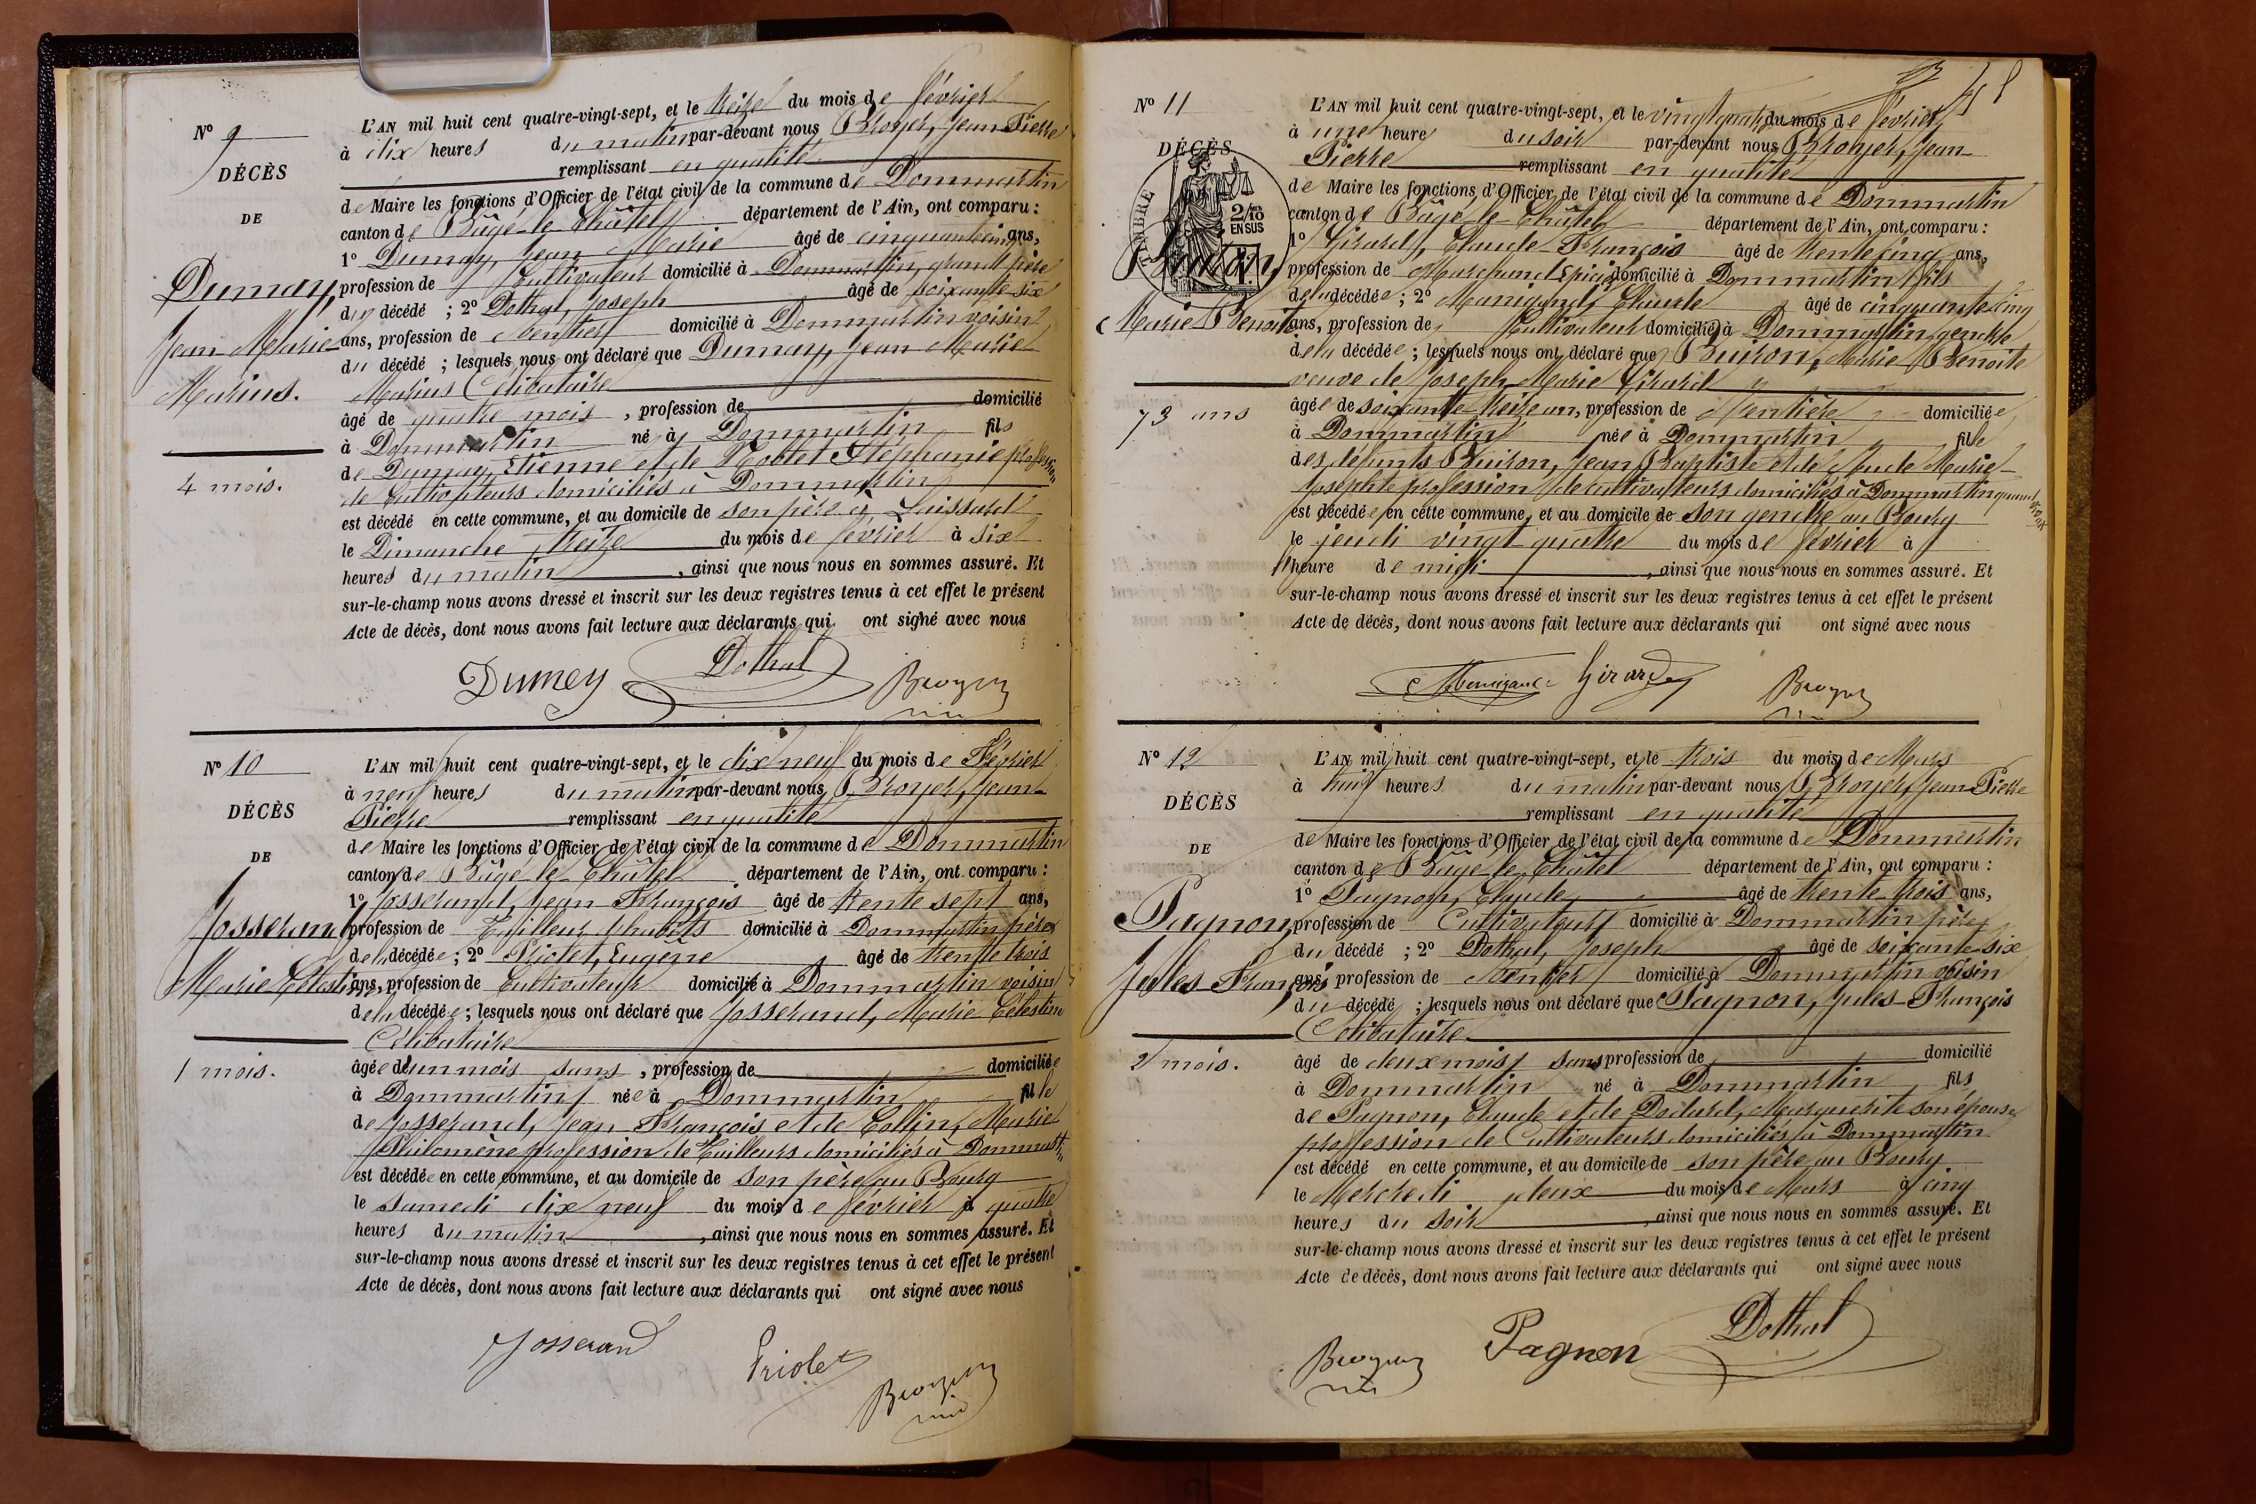 N° 9
DÉCÈS
DE
Dumay,
Jean Marie
Marius.
4 mois.
L'AN mil huit cent quatre-vingt-sept, et le treize du mois de février
à dix heures du matin par-devant nous Broyer, Jean Pierre
remplissant en qualité
de Maire les fonctions d'Officier de l'état civil de la commune de Dommartin
canton de Bâgé-le-Châtel département de l'Ain, ont comparu :
1° Dumay, Jean Marie âgé de cinquante cinq ans,
profession de Cultivateur domicilié à Dommartin, grand père
du décédé ; 2° Dothal, Joseph âgé de soixante six
ans, profession de Rentier domicilié à Dommartin voisin
du décédé ; lesquels nous ont déclaré que Dumay, Jean Marie
Marius Célibataire
âgé de quatre mois, profession de domicilié
à Dommartin né à Dommartin fils
de Dumay, Etienne et de Stéphanie profession
de Cultivateurs domiciliés à Dommartin
est décédé en cette commune, et au domicile de son père à Loissard
le Dimanche treize du mois de février à six
heures du matin, ainsi que nous nous en sommes assuré. Et
sur-le-champ nous avons dressé et inscrit sur les deux registres tenus à cet effet le présent
Acte de décès, dont nous avons fait lecture aux déclarants qui ont signé avec nous
Dumey Dothal Broyer
N° 10
DÉCÈS
DE
Josserand
Marie Célestine
1 mois.
L'AN mil huit cent quatre-vingt-sept, et le dix neuf du mois de Février
à neuf heures du matin par-devant nous Broyer, Jean
Pierre remplissant en qualité
de Maire les fonctions d'Officier de l'état civil de la commune de Dommartin
canton de Bâgé-le-Châtel département de l'Ain, ont comparu :
1° Josserand, Jean François âgé de trente sept ans,
profession de Tailleur d'habits domicilié à Dommartin père
de la décédée ; 2° Priolet, Eugène âgé de trente trois
ans, profession de Cultivateur domicilié à Dommartin voisin
de la décédée ; lesquels nous ont déclaré que Josserand, Marie Célestine
Célibataire
âgée d'un mois sans, profession de domiciliée
à Dommartin née à Dommartin fille
de Josserand, Jean François et de Collin, Marie
Philomène profession de tailleurs domiciliés à Dommartin
est décédée en cette commune, et au domicile de son père au Bourg
le Samedi dix neuf du mois de février à quatre
heures du matin, ainsi que nous nous en sommes assuré. Et
sur-le-champ nous avons dressé et inscrit sur les deux registres tenus à cet effet le présent
Acte de décès, dont nous avons fait lecture aux déclarants qui ont signé avec nous
Josserand Priolet Broyer
N° 11
DÉCÈS
TIMBRE
2/10 EN SUS
Buiron,
Marie Benoite
73 ans
L'AN mil huit cent quatre-vingt-sept, et le vingt quatre du mois de février
à une heure du soir par-devant nous Broyer, Jean
Pierre remplissant en qualité
de Maire les fonctions d'Officier de l'état civil de la commune de Dommartin
canton de Bâgé-le-Châtel département de l'Ain, ont comparu :
1° Girard, Claude François âgé de trente cinq ans,
profession de Marchand Epicier domicilié à Dommartin fils
de la décédée ; 2° Manigand, Claude âgé de cinquante cinq
ans, profession de Cultivateur domicilié à Dommartin gendre
de la décédée ; lesquels nous ont déclaré que Buiron, Marie Benoite
veuve de Joseph Marie Girard
âgée de soixante treize an, profession de Rentière domiciliée
à Dommartin née à Dommartin fille
des défunts Buiron, Jean Baptiste et de Marie
Josephte profession de cultivateurs domiciliés à Dommartin quand vivaient
est décédée en cette commune, et au domicile de son gendre au Bourg
le jeudi vingt quatre du mois de février à
heure de midi, ainsi que nous nous en sommes assuré. Et
sur-le-champ nous avons dressé et inscrit sur les deux registres tenus à cet effet le présent
Acte de décès, dont nous avons fait lecture aux déclarants qui ont signé avec nous
Manigand Girard Broyer
N° 12
DÉCÈS
DE
Pagnon,
Jules François
2 mois.
L'AN mil huit cent quatre-vingt-sept, et le trois du mois de Mars
à huit heures du matin par-devant nous Broyer, Jean Pierre
remplissant en qualité
de Maire les fonctions d'Officier de l'état civil de la commune de Dommartin
canton de Bâgé-le-Châtel département de l'Ain, ont comparu :
1° Pagnon, Claude âgé de trente trois ans,
profession de Cultivateur domicilié à Dommartin père
du décédé ; 2° Dothal, Joseph âgé de soixante six
ans, profession de Rentier domicilié à Dommartin voisin
du décédé ; lesquels nous ont déclaré que Pagnon, Jules François
Célibataire
âgé de deux mois, sans profession de domicilié
à Dommartin né à Dommartin fils
de Pagnon, Claude et de Marguerite son épouse
profession de Cultivateurs domiciliés à Dommartin
est décédé en cette commune, et au domicile de son père au Bourg
le Mercredi deux du mois de Mars à cinq
heures du soir, ainsi que nous nous en sommes assuré. Et
sur-le-champ nous avons dressé et inscrit sur les deux registres tenus à cet effet le présent
Acte de décès, dont nous avons fait lecture aux déclarants qui ont signé avec nous
Broyer Pagnon Dothal